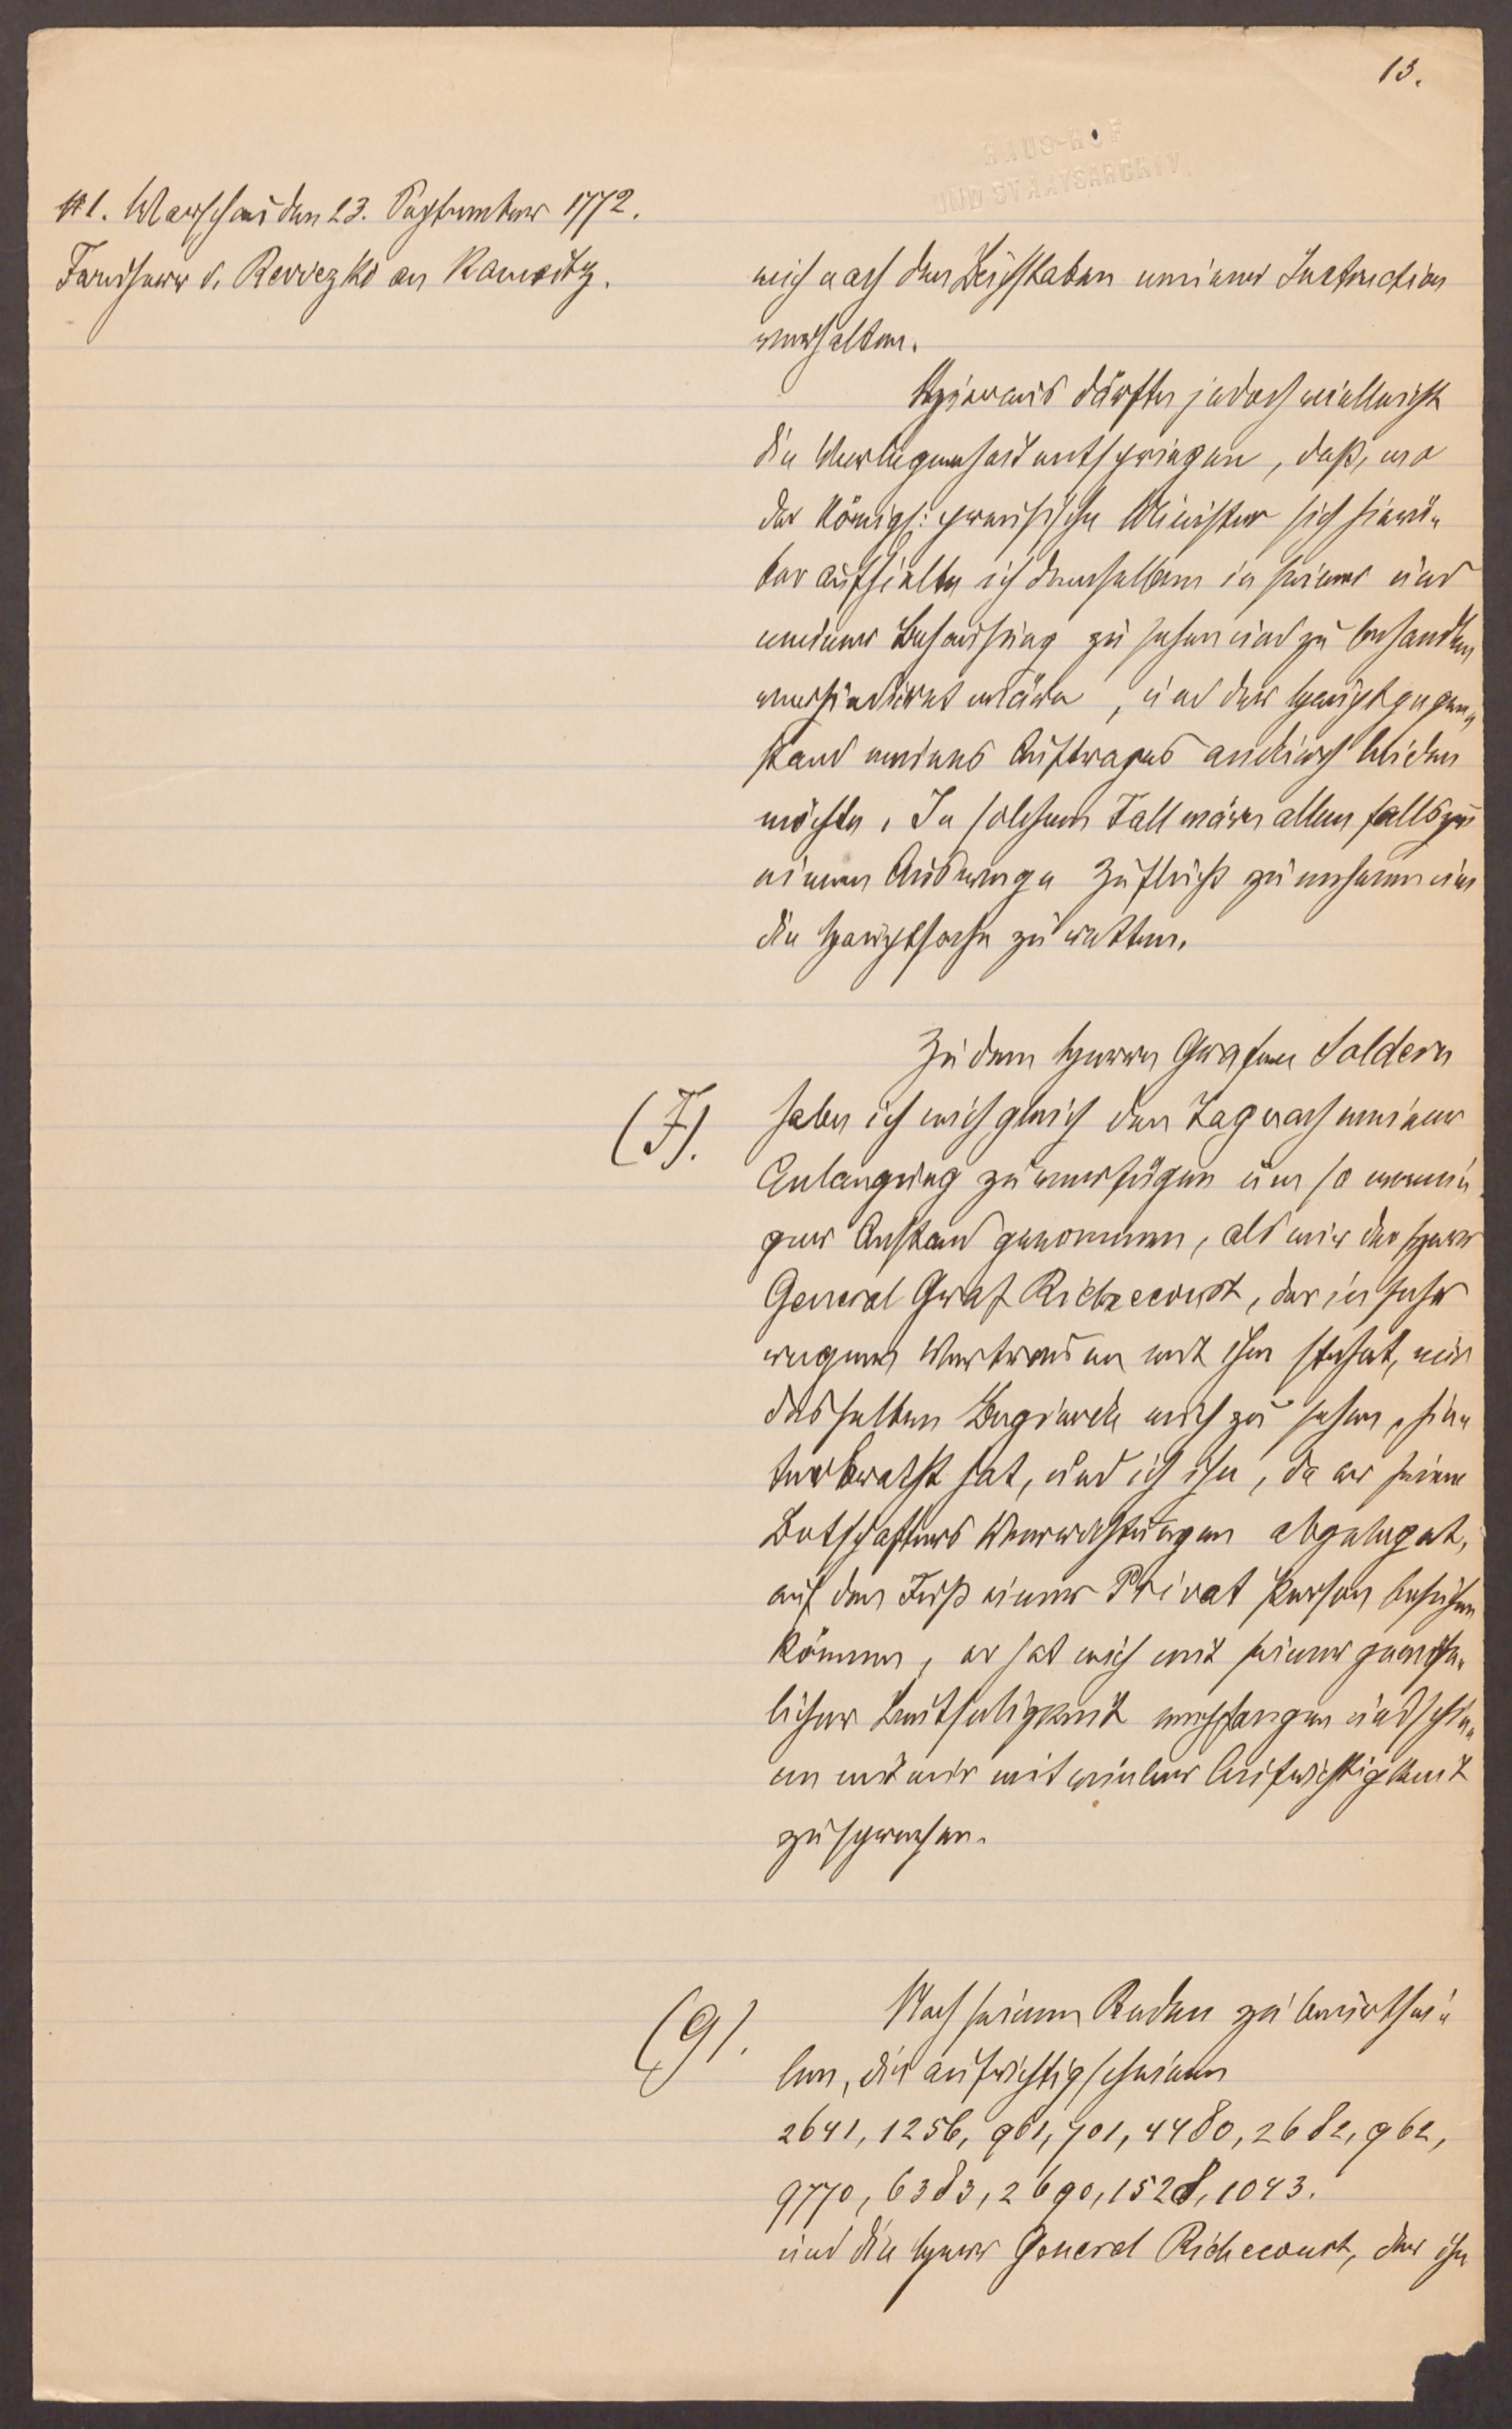 13.
HAUS-HOF
UND STAATSARCHIV
#1. Warschau den 23. September 1772.
Freiherr v. Reviczko an Kaunitz.
mich nach den Buchstaben meiner Instruction
verhalten.
Hieraus dürfte jedoch vielleicht
die Verlegenheit entspringen, daß, wo
der Königl: preusische Minister sich hierü„
ber aufhielte ich denselben in seiner und
meiner Behausung zu sehen und zu behandeln
verhindert wäre, und der Hauptgegen„
stand meines Auftrages andurch leiden
möchte. In solchem Fall wäre allen falls zu
einem Auswege Zuflucht zu nehmen um
die Hauptsache zu retten.
Zu dem Herrn Grafen Saldern
(F). habe ich mich gleich den Tag nach meiner
Anlangung zu verfügen um so weni„
ger Anstand genommen, als mir der Herr
General Graf Richecourt, der in sehr
engem Vertrauen mit ihm stehet, mir
desselben Begierde mich zu sehen, hin„
terbracht hat, und ich ihn, da er seine
Botschafters Verrichtungen abgeleget,
auf dem Fuß einer Privat Person besuchen
können, er hat mich mit seiner gewöhn„
licher Leutseligkeit empfangen und schie„
ne mit mir mit vieler Aufrichtigkeit
zu sprechen.
(G). Nach seinen Reden zu beurthei„
len, die aufrichtig scheinen
2641, 1256, 961, 701, 4480, 2682, 962,
9770, 6383, 2690, 1528, 1043.
und die Herr General Richecourt, der ihn